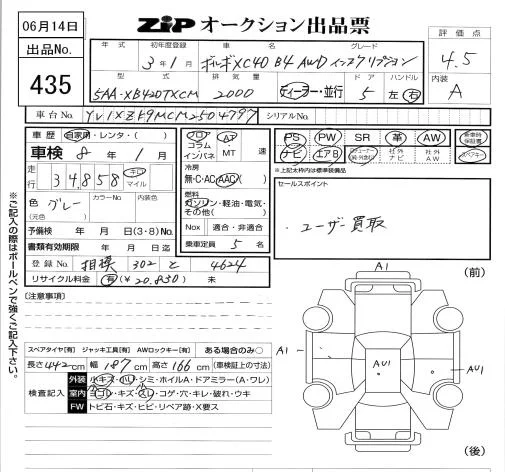 06月14日
出品No.
435
ZIP オークション出品票
評価点
4.5
内装
A
年式 初年度登録 車名 グレード
3年1月 ボルボXC40 B4 AWD インスクリプション
型式 排気量 ドア ハンドル
5AA-XB420TXCM 2000 ディーラー・並行 5 左 右
車台No. YV1XZK9MCM2504797 シリアルNo.
車歴 自家用・レンタ・( )
車検 8年1月
走行 34,858 キロ マイル
色 グレー (元色) カラーNo. 内装色
予備検 年 月 日(3・8)No.
書類有効期限 年 月 日迄
登録No. 相模 302 と 4624
リサイクル料金 有(¥20,850) 未
フロア コラム インパネ AT・MT 速
冷房 無・C・AC・AAC
燃料 ガソリン・軽油・電気・その他( )
Nox 適合・非適合
乗車定員 5名
PS PW SR 革 AW 新車時保証書
ナビ エアB 社外ナビ 社外AW
*上記太枠内は標準装備品
セールスポイント
・ユーザー買取
※ご記入の際はボールペンで強くご記入下さい。
[注意事項]
スペアタイヤ[有] ジャッキ工具[有] AWロックキー[有] ある場合のみ○
長さ442cm 幅187cm 高さ166cm (車検証上の寸法)
検査記入
外装 小キズ・小凹・シミ・ホイルA・ドアミラー(A・ワレ)
室内 ヨゴレ・キズ・スレ・コゲ・穴・キレ・破れ・ウキ
FW トビ石・キズ・ヒビ・リペア跡・X要ス
(前)
A1
A1
AU1
AU1
(後)